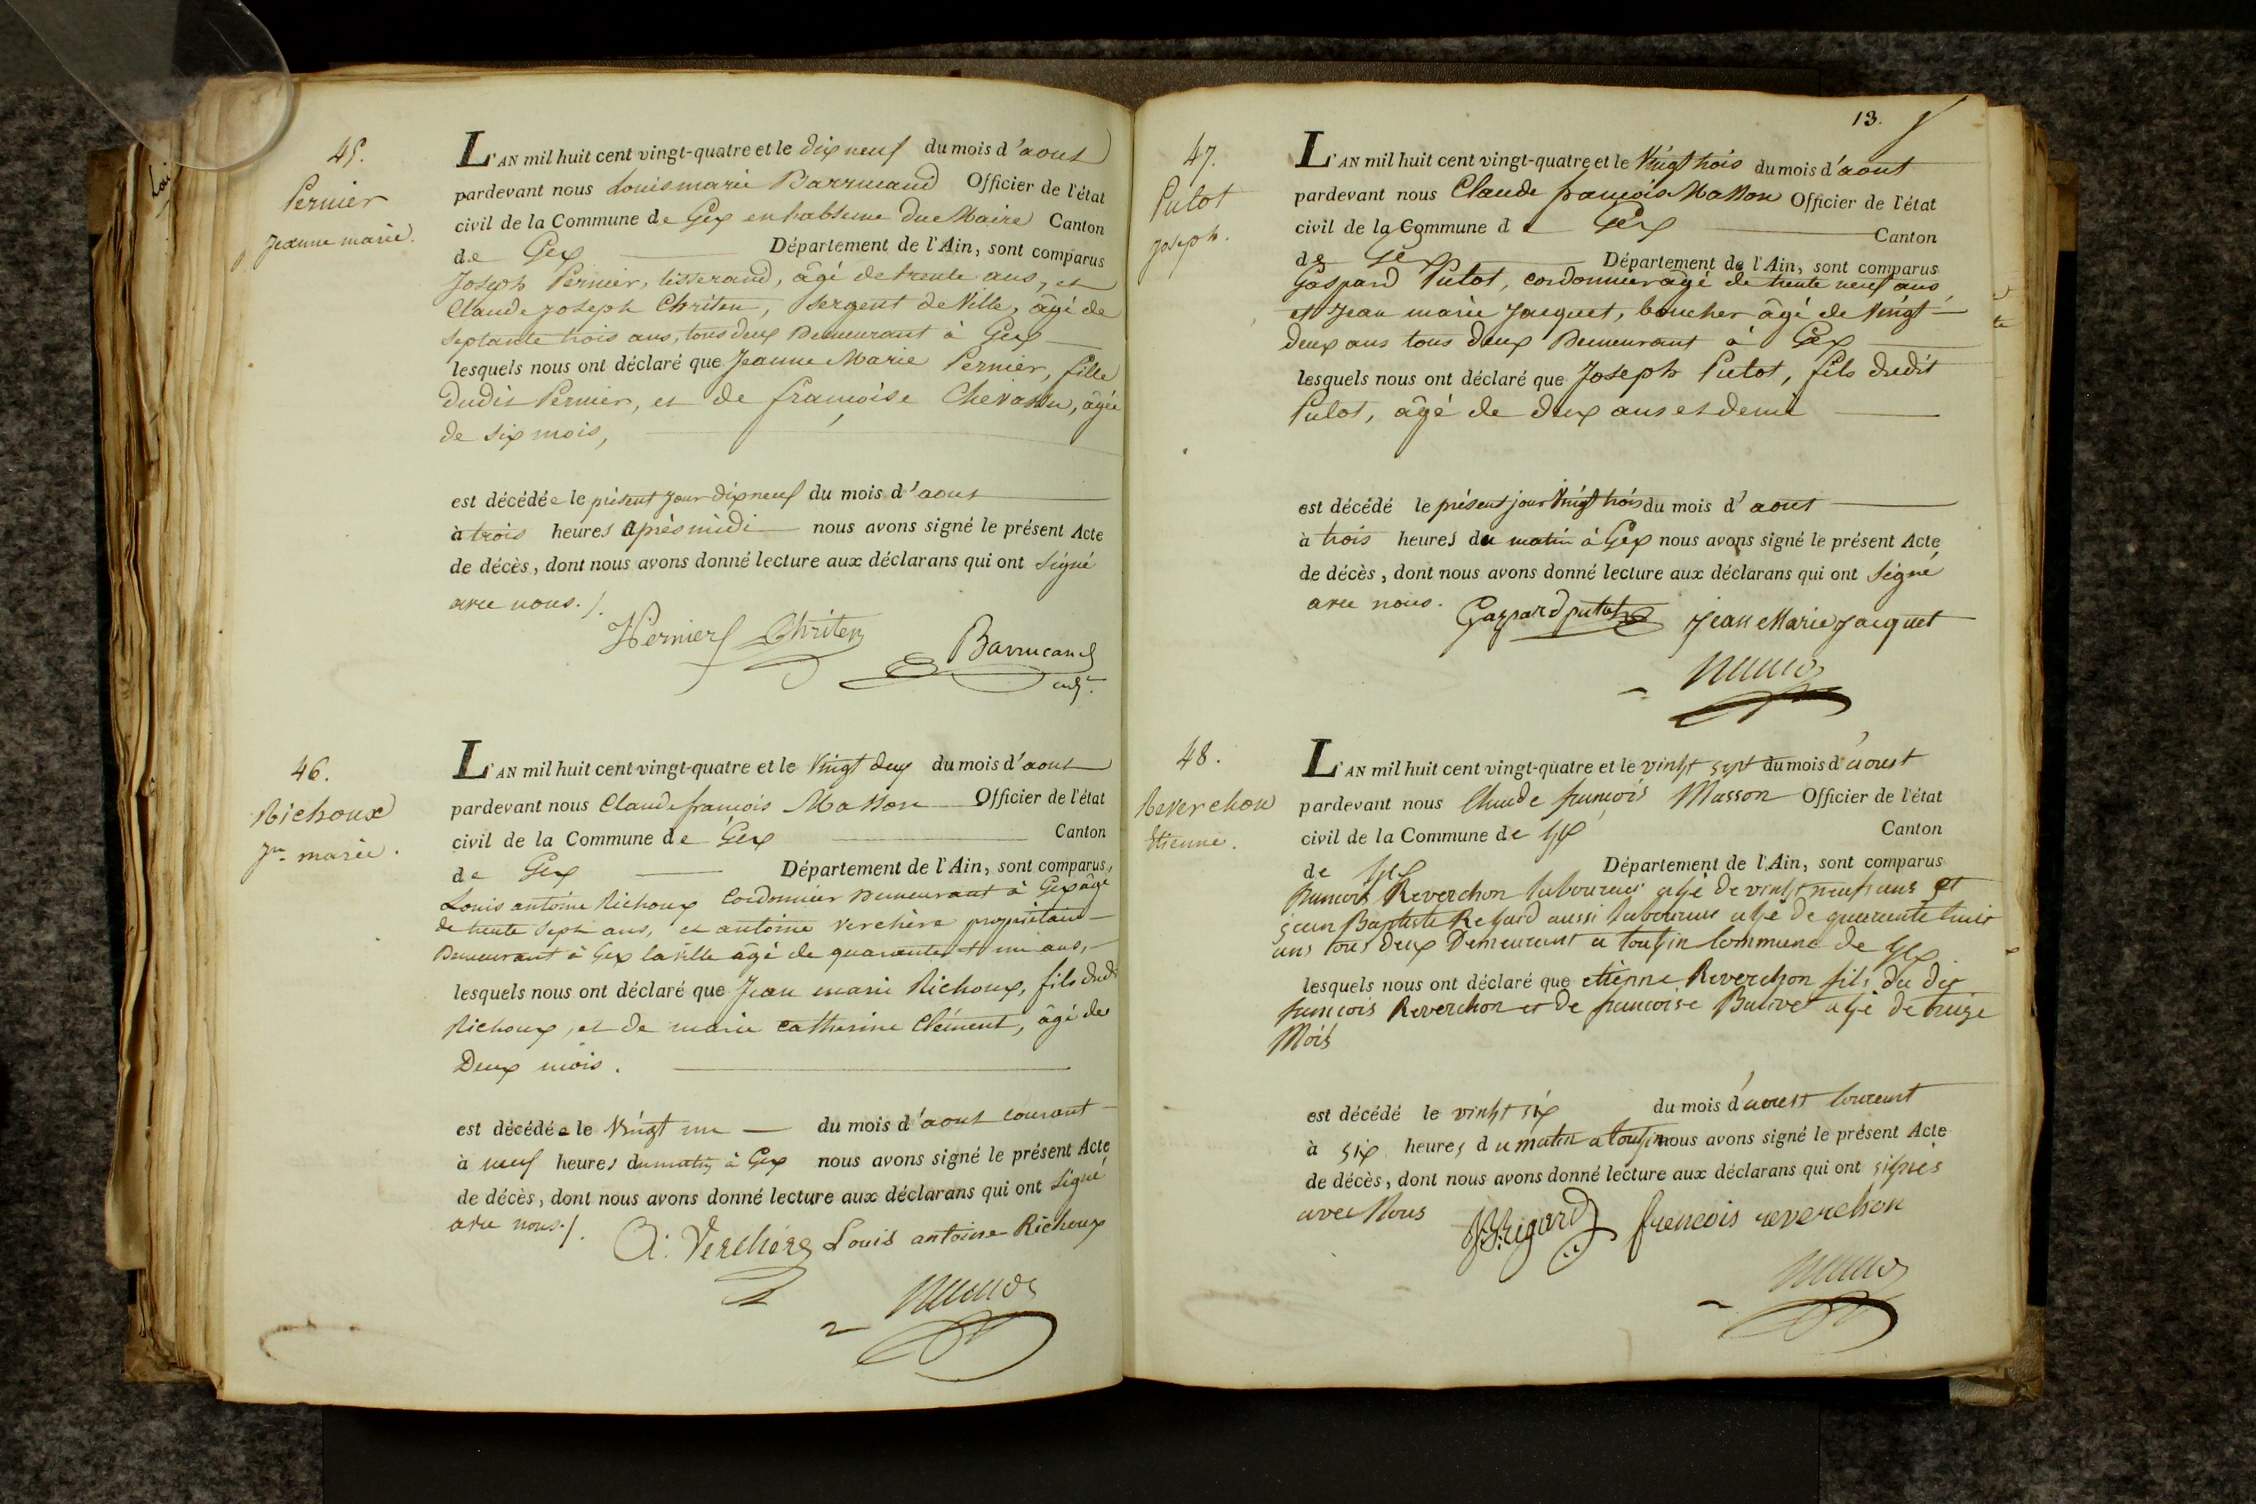 45.
Pernier
Jeanne marie.
L'AN mil huit cent vingt-quatre et le dix neuf du mois d'aout
pardevant nous Louis marie Barrucand Officier de l'état
civil de la Commune de Gex en l'absence du Maire Canton
de Gex Département de l'Ain, sont comparus
Joseph Pernier, tisserand, âgé de trente ans, et
Claude joseph Chriten, Sergent de Ville, âgé de
septante trois ans, tous deux Demeurant à Gex
lesquels nous ont déclaré que Jeanne Marie Pernier, fille
dudit Pernier, et de françoise Chevassu, âgée
de six mois,
est décédée le présent jour dix neuf du mois d'aout
à trois heures après midi nous avons signé le présent Acte
de décès, dont nous avons donné lecture aux déclarans qui ont signé
avec nous./.
Pernier Chriten
Barrucand
adjt.
46.
Richoux
Jn. marie.
L'AN mil huit cent vingt-quatre et le Vingt deux du mois d'aout
pardevant nous Claude françois Masson Officier de l'état
civil de la Commune de Gex Canton
de Gex Département de l'Ain, sont comparus
Louis antoine Richoux Cordonnier Demeurant à Gex âgé
de trente sept ans, et antoine Verchère propriétaire
Demeurant à Gex la ville âgé de quarante et un ans,
lesquels nous ont déclaré que Jean marie Richoux, fils dudi
Richoux, et de marie catherine Clément, âgé de
Deux mois.
est décédée le Vingt un du mois d'aout courant
à neuf heures du matin à Gex nous avons signé le présent Acte
de décès, dont nous avons donné lecture aux déclarans qui ont signé
avec nous./.
A. Verchère Louis antoine Richoux
13.
47.
Putot
Joseph.
L'AN mil huit cent vingt-quatre et le Vingt trois du mois d'aout
pardevant nous Claude françois Masson Officier de l'état
civil de la Commune de Gex Canton
de Gex Département de l'Ain, sont comparus
Gaspard Putot, cordonnier âgé de trente neuf ans,
et Jean marie Jacquet, boucher âgé de Vingt
deux ans tous deux Demeurant à Gex
lesquels nous ont déclaré que Joseph Putot, fils dudit
Putot, âgé de deux ans et demi
est décédé le présent jour Vingt trois du mois d'aout
à trois heures du matin à Gex nous avons signé le présent Acte
de décès, dont nous avons donné lecture aux déclarans qui ont signé
avec nous.
Gaspard putot Jean Marie Jacquet
48.
Reverchon
Etienne.
L'AN mil huit cent vingt-quatre et le vinht sept du mois d'aoust
pardevant nous Claude françois Masson Officier de l'état
civil de la Commune de Gex Canton
de Gex Département de l'Ain, sont comparus
francois Reverchon laboureur agé de vinht neuf ans et
jean Baptiste Regard aussi laboureur agé de quarente huit
ans tous deux Demeurant a tougin Commune de Gex
lesquels nous ont déclaré que etienne Reverchon fils du dit
francois Reverchon et de francoise agé de treize
Mois
est décédé le vinht six du mois d'aoust Courent
à six heures du matin a tougin nous avons signé le présent Acte
de décès, dont nous avons donné lecture aux déclarans qui ont signes
avec Nous
JBRegard francois reverchon